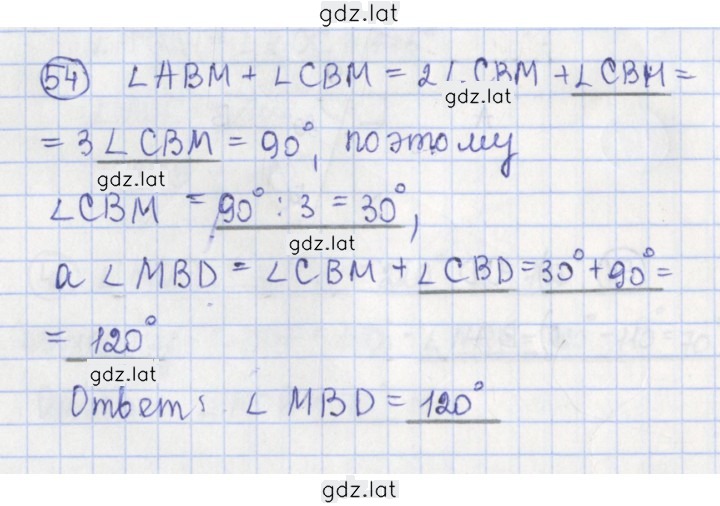 gdz.lat
54 ∠ABM + ∠CBM = 2∠CBM + ∠CBM =
gdz.lat
= 3∠CBM = 90°, поэтому
gdz.lat
∠CBM = 90° : 3 = 30°,
gdz.lat
а ∠MBD = ∠CBM + ∠CBD = 30° + 90° =
= 120°
gdz.lat
Ответ: ∠MBD = 120°
gdz.lat